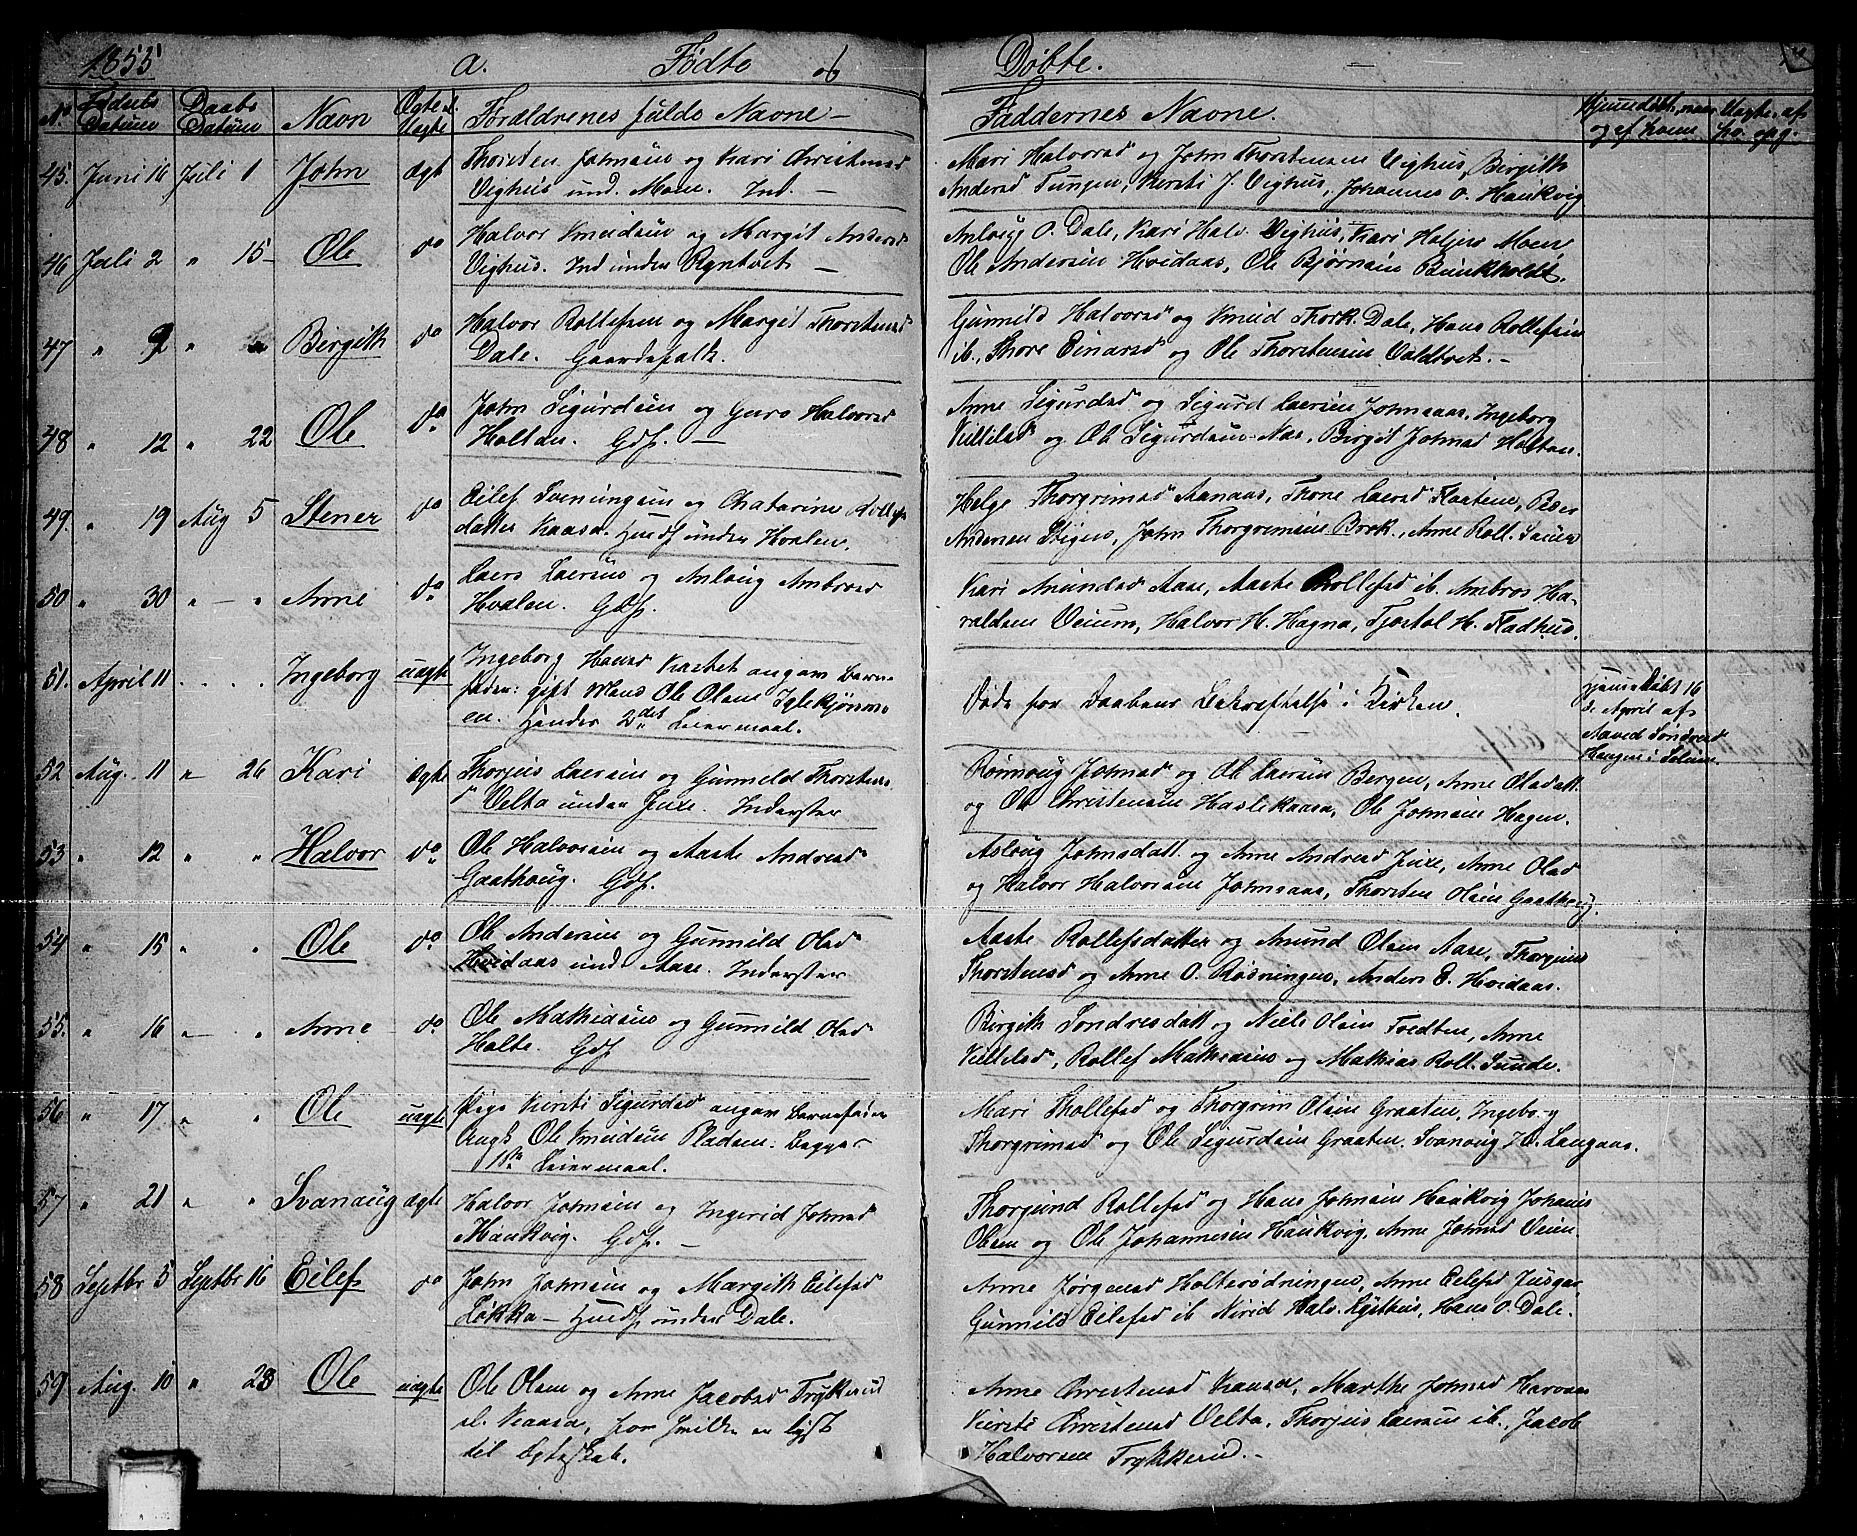 1855 a. Fødte og Døbte.
No Fødsels Datum Daabs Datum Navn Ægte el. Uægte Forældrenes fulde Navne — Faddernes Navne. Hjemmedøbt, naar og af hvem Uægte, af
45. Juni 16 Juli 1 John ægt Thorsten Johnsen og Kari Christensd
Vighus und. Moen. Ind. —
Mari Halvorsd og John Thorstensen Vighus, Birgith
Andersd Tungen, Kersti J. Vighus, Johannes O. Haukvig
46 Juli 2 " 15 Ole do Halvor Knudsen og Margit Andersd
Vighus. Ind under —
Anlaug O. Dale, Kari Halv. Vighus, Kari Moen
Ole Andersen Hvidaas, Ole Bjørnsen Bunkholdt.
47 " 2 " " Birgith do Halvor Rollefsen og Margit Thorstensd
Dale. Gaardsfolk.
Gunnild Halvorsd og Knud Thork. Dale, Hans Rollefsen
ib., Thore Einarsd og Ole Thorstensen. —
48 " 12 " 22 Ole do John Sigurdsen og Guro Halvorsd
Holten. Gdf. —
Anne Sigurdsd og Sigurd Laersen Johnsaas, Ingeborg
Kittilsd og Ole Sigurdsen, Birgit Johnsd Holten.
49. " 19 Aug 5 Stener do Eilef Sveningsen og Chatarine Rollefs
datter Kaasa. Husf under Hvalen.
Helge Thorgrimsd Aanaas, Thone Laersd Flaatene, Peder
Andersen, John Thorgrimsen Brok., Anne Roll.
50 " 30 " — " Anne do Laers Laersen og Anlaug Ambrosd
Hvalen. Gdf.
Kari Amundsd Aase, Aaste Rollefsd ib. Ambros Ha-
raldsen Veium, Halvor H. Hagna, Tjostol H. Fladhus.
51. April 11 . . . . Ingeborg uægte Ingeborg Hansd angav Barne-
faden: gift Mand Ole Olsen Iglekjønn-
en. Hendes 2det Leiermaal.
Døde før Daabens Bekræftelse i Kirken.
Hjemmedøbt 16
d. April af
52 Aug. 11 " 26 Kari ægte Thorjus Laersen og Gunnild Thorstens
d Velta under Juxe. Inderster
Rønnoug Johnsd og Ole Laersen Bergen, Anne Olsdatt.
og Ole Christensen Haslekaasa, Ole Johnsen Hagen.
53 " 12 " " Halvor do Ole Halvorsen og Aaste Andresd
Gaathoug. Gdf.
Asloug Johnsdatt. og Anne Andresd Juxe, Anne Olsd
og Halvor Halvorsen Johnsaas, Thorsten Olsen Gaathoug.
54 " 15 " " Ole do Ole Andersen og Gunnild Olsd
Hvidaas und. Aase. Inderster
Aaste Rollefsdatter og Amund Olsen Aase, Thorgun
Thorstensd og Anne O. Røsningen, Anders E. Hvidaas.
55. " 16 " . " Anne do Ole Mathiasen og Gunnild Olsd
Holte. Gdf
Birgith Sondresdatt og Niels Olsen Tvedten, Anne
Kittilsd, Rollef Mathiasen og Mathias Roll. Sunde.
56 " 17 " " Ole uægte Pige Kirsti Sigurdsd angav Barnefader
Ungk. Ole Knudsen Pladsen. Begges
1ste Leiermaal.
Mari Thollefsd og Thorgrim Olsen Graaten, Ingeborg
Thorgrimsd og Ole Sigurdsen Graaten, Svanoug H. Langaas.
57 " 21 " " Svanaug ægte Halvor Johnsen og Ingerid Johnsd
Haukvig. Gdf. —
Thorgund Rollefsd og Hans Johnsen Haukvig, Johanis
Olsen og Ole Johannesen Haukvig, Anne Johnsd Veien.
58 Septbr 5 Septbr 16 Eilef do John Johnsen og Margith Eilefsd
Løkka — Husf under Dale.
Anne Jørgensd Holterødningen, Anne Eilefsd
Gunnild Eilefsd ib. Halv. Hans O. Dale.
59 Aug. 10 " 23 Ole uægte Ole Olsen og Anne Jacobsd Trykkerud
el. Kaasa, er lyst
til Egteskab.
Anne Christensd Kaasa, Marthe Johnsd
Kirsti Christensd Velta, Thorjus Laersen ib., Jacob
Halvorsen Trykkerud. —